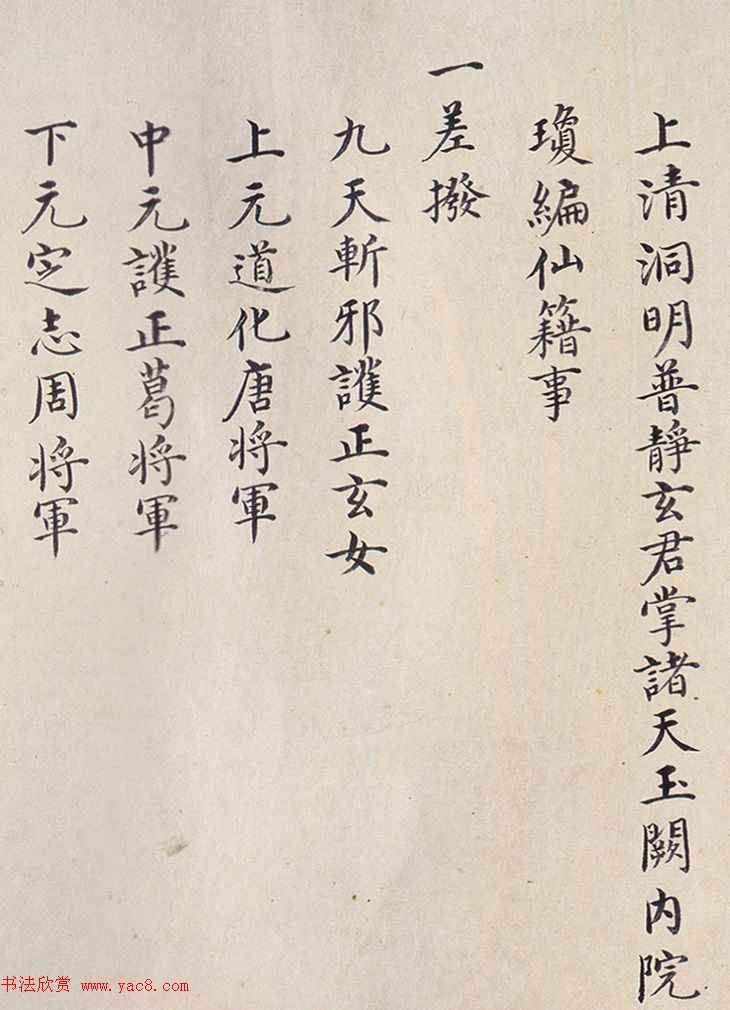 上清洞明普靜玄君掌諸天玉闕内院
瓊編仙籍事
一差撥
九天斬邪護正玄女
上元道化唐将軍
中元護正葛将軍
下元定志周将軍
书法欣赏 www.yac8.com